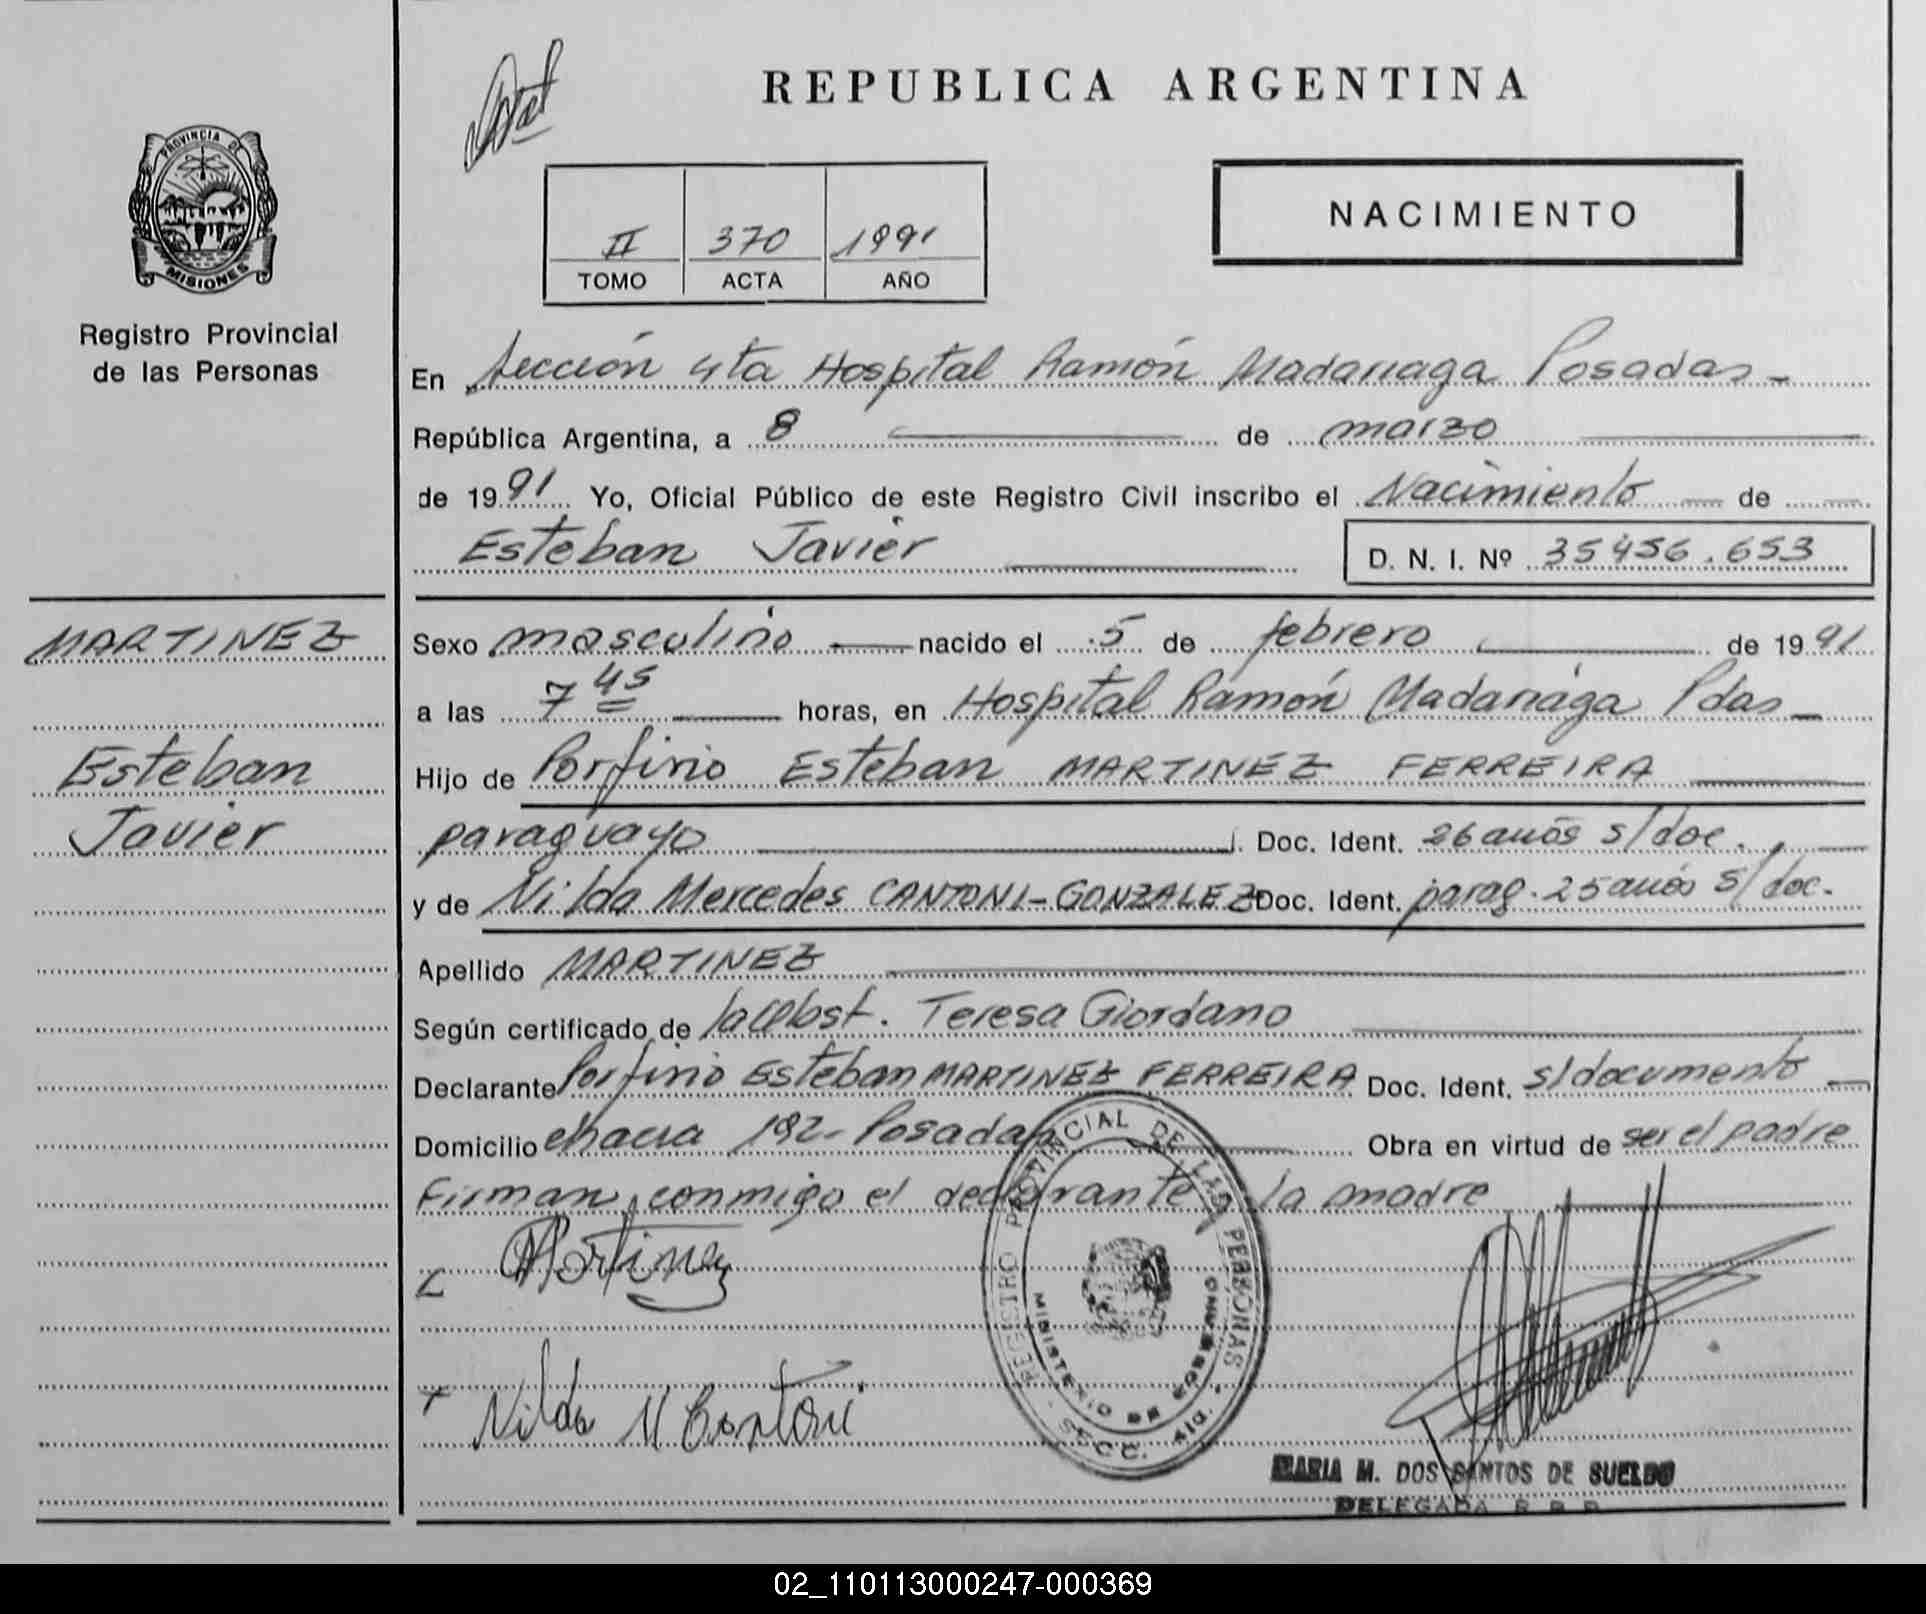 REPUBLICA ARGENTINA
PROVINCIA DE
MISIONES
Registro Provincial
de las Personas
II 370 1991
TOMO ACTA AÑO
NACIMIENTO
En Sección 4ta Hospital Ramón Madariaga Posadas -
República Argentina, a 8 de marzo
de 1991 Yo, Oficial Público de este Registro Civil inscribo el Nacimiento de
Esteban Javier D. N. I. Nº 35456.653
MARTINEZ
Esteban
Javier
Sexo masculino nacido el 5 de febrero de 1991
a las 7 45 horas, en Hospital Ramón Madariaga Pdas -
Hijo de Porfirio Esteban MARTINEZ FERREIRA
paraguayo Doc. Ident. 26 años s/doc.
y de Nilda Mercedes CANTONI-GONZALEZ Doc. Ident. parag. 25 años s/doc.
Apellido MARTINEZ
Según certificado de la Obst. Teresa Giordano
Declarante Porfirio Esteban MARTINEZ FERREIRA Doc. Ident. s/documento
Domicilio chacra 192- Posadas Obra en virtud de ser el padre
Firman conmigo el declarante la madre
Martinez
Nilda M Cantoni
REGISTRO PROVINCIAL DE LAS PERSONAS
MINISTERIO DE GOBIERNO
SECC. 4ta.
MARIA M. DOS SANTOS DE SUELDO
DELEGADA R. P. P.
02_110113000247-000369